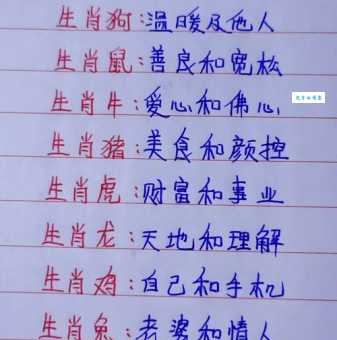 生肖狗:温暖及他人
生肖鼠:善良和宽松
生肖牛:爱心和佛心
生肖猪:美食和颜控
生肖虎:财富和事业
生肖龙:天地和理解
生肖鸡:自己和手机
生肖兔:老婆和情人